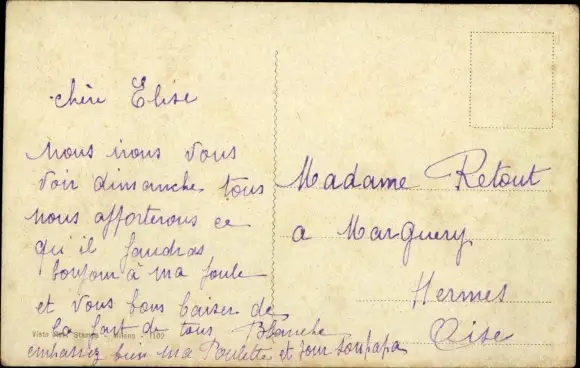 chère Elise
nous irons vous
voir dimanche tous
nous apporterons ce
qu'il faudras
bonjour à ma
et vous bons baiser de
la part de tous Blanche
Visto Rev. Stampa - Milano - 1109
embrassez bien ma Poulette et son papa
Madame Retout
a Marguery
Hermes
Oise